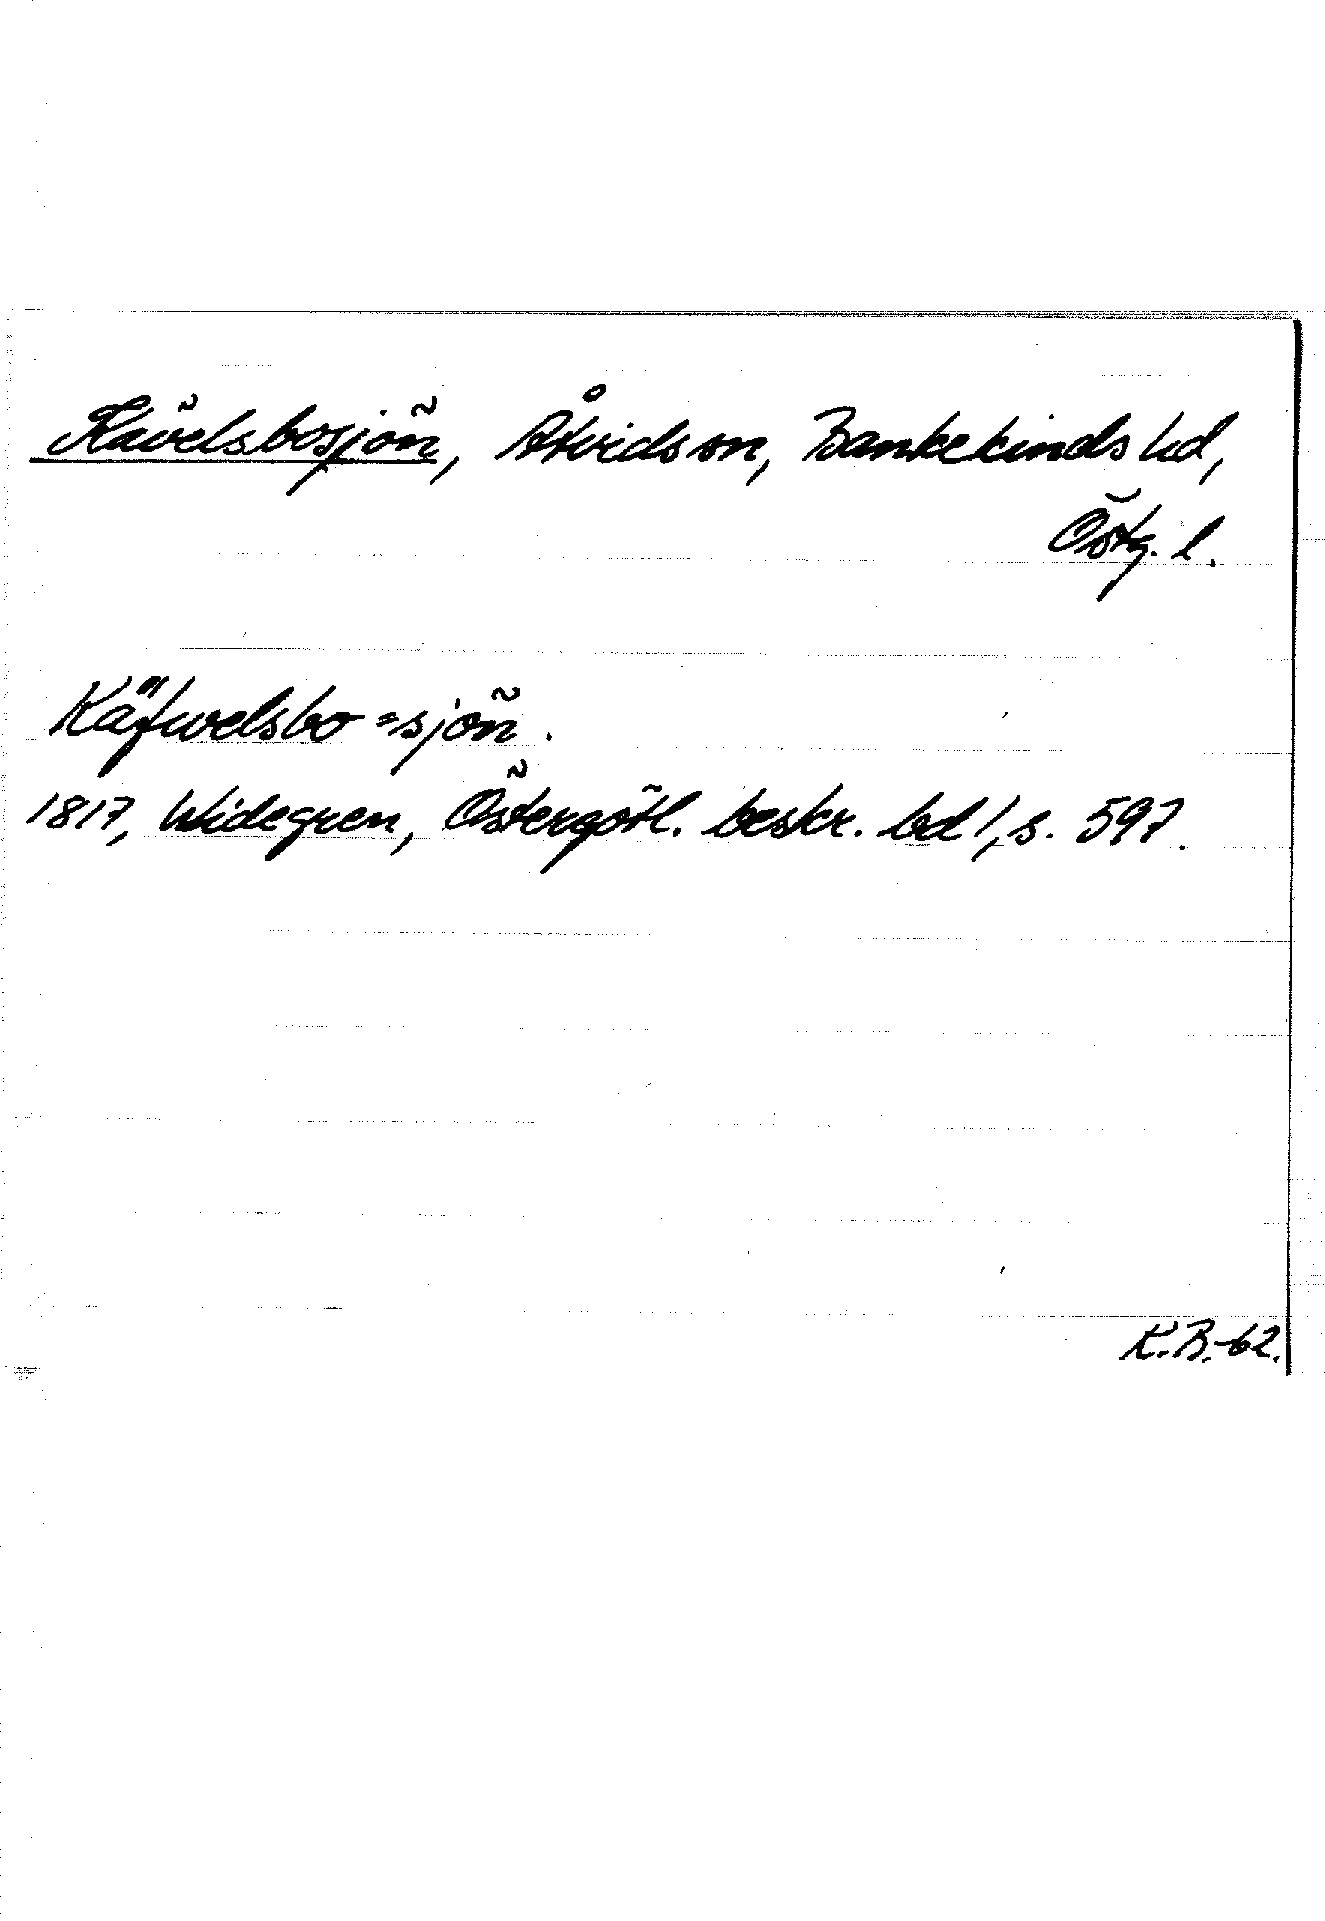 Kävelsbosjön, Åtvidsn, Bankekinds hd,
Östg. l.
Käfwelsbo=sjön.
1817, Widegren, Östergötl. beskr. bd 1, s. 597.
K.B.-62.